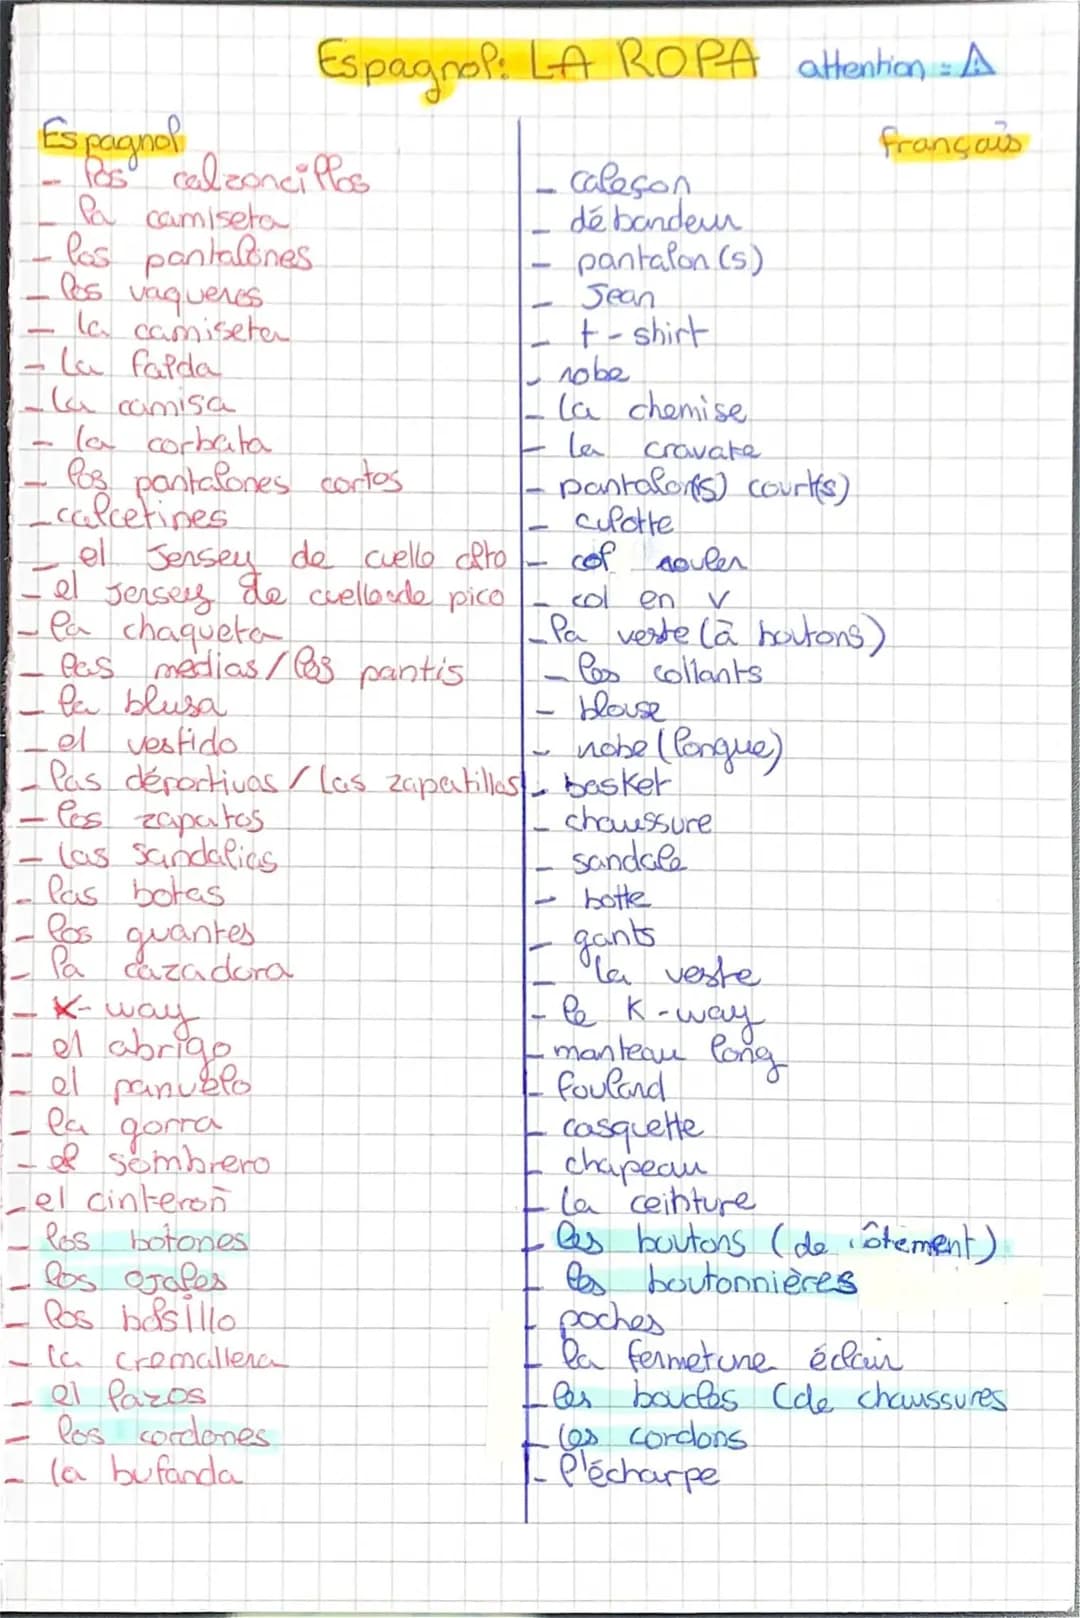 Espagnol: LA ROPA attention = ⚠
Espagnol français
- los calzoncillos - caleçon
- la camiseta - débardeur
- los pantalones - pantalon(s)
- los vaqueros - Jean
- la camiseta - t-shirt
- La falda - robe
- la camisa - la chemise
- la corbata - la cravate
- los pantalones cortos - pantalon(s) court(s)
- calcetines - culotte
- el Jersey de cuello alto - col rouler
- el Jersey de cuello de pico - col en v
- la chaqueta - la veste (à boutons)
- las medias / los pantis - les collants
- la blusa - blouse
- el vestido - robe (longue)
- las déportivas / las zapatillas - basket
- los zapatos - chaussure
- las sandalias - sandale
- las botas - botte
- los guantes - gants
- la cazadora - la veste
- K-way - le K-way
- el abrigo - manteau long
- el panuelo - foulard
- la gorra - casquette
- el sombrero - chapeau
- el cinteroñ - la ceinture
- los botones - les boutons (de
- los ojales - les boutonnières
- los bolsillo - poches
- la cremallera - la fermeture éclair
- el lazos - les boucles (de chaussures
- los cordones - les cordons
- la bufanda - l'écharpe